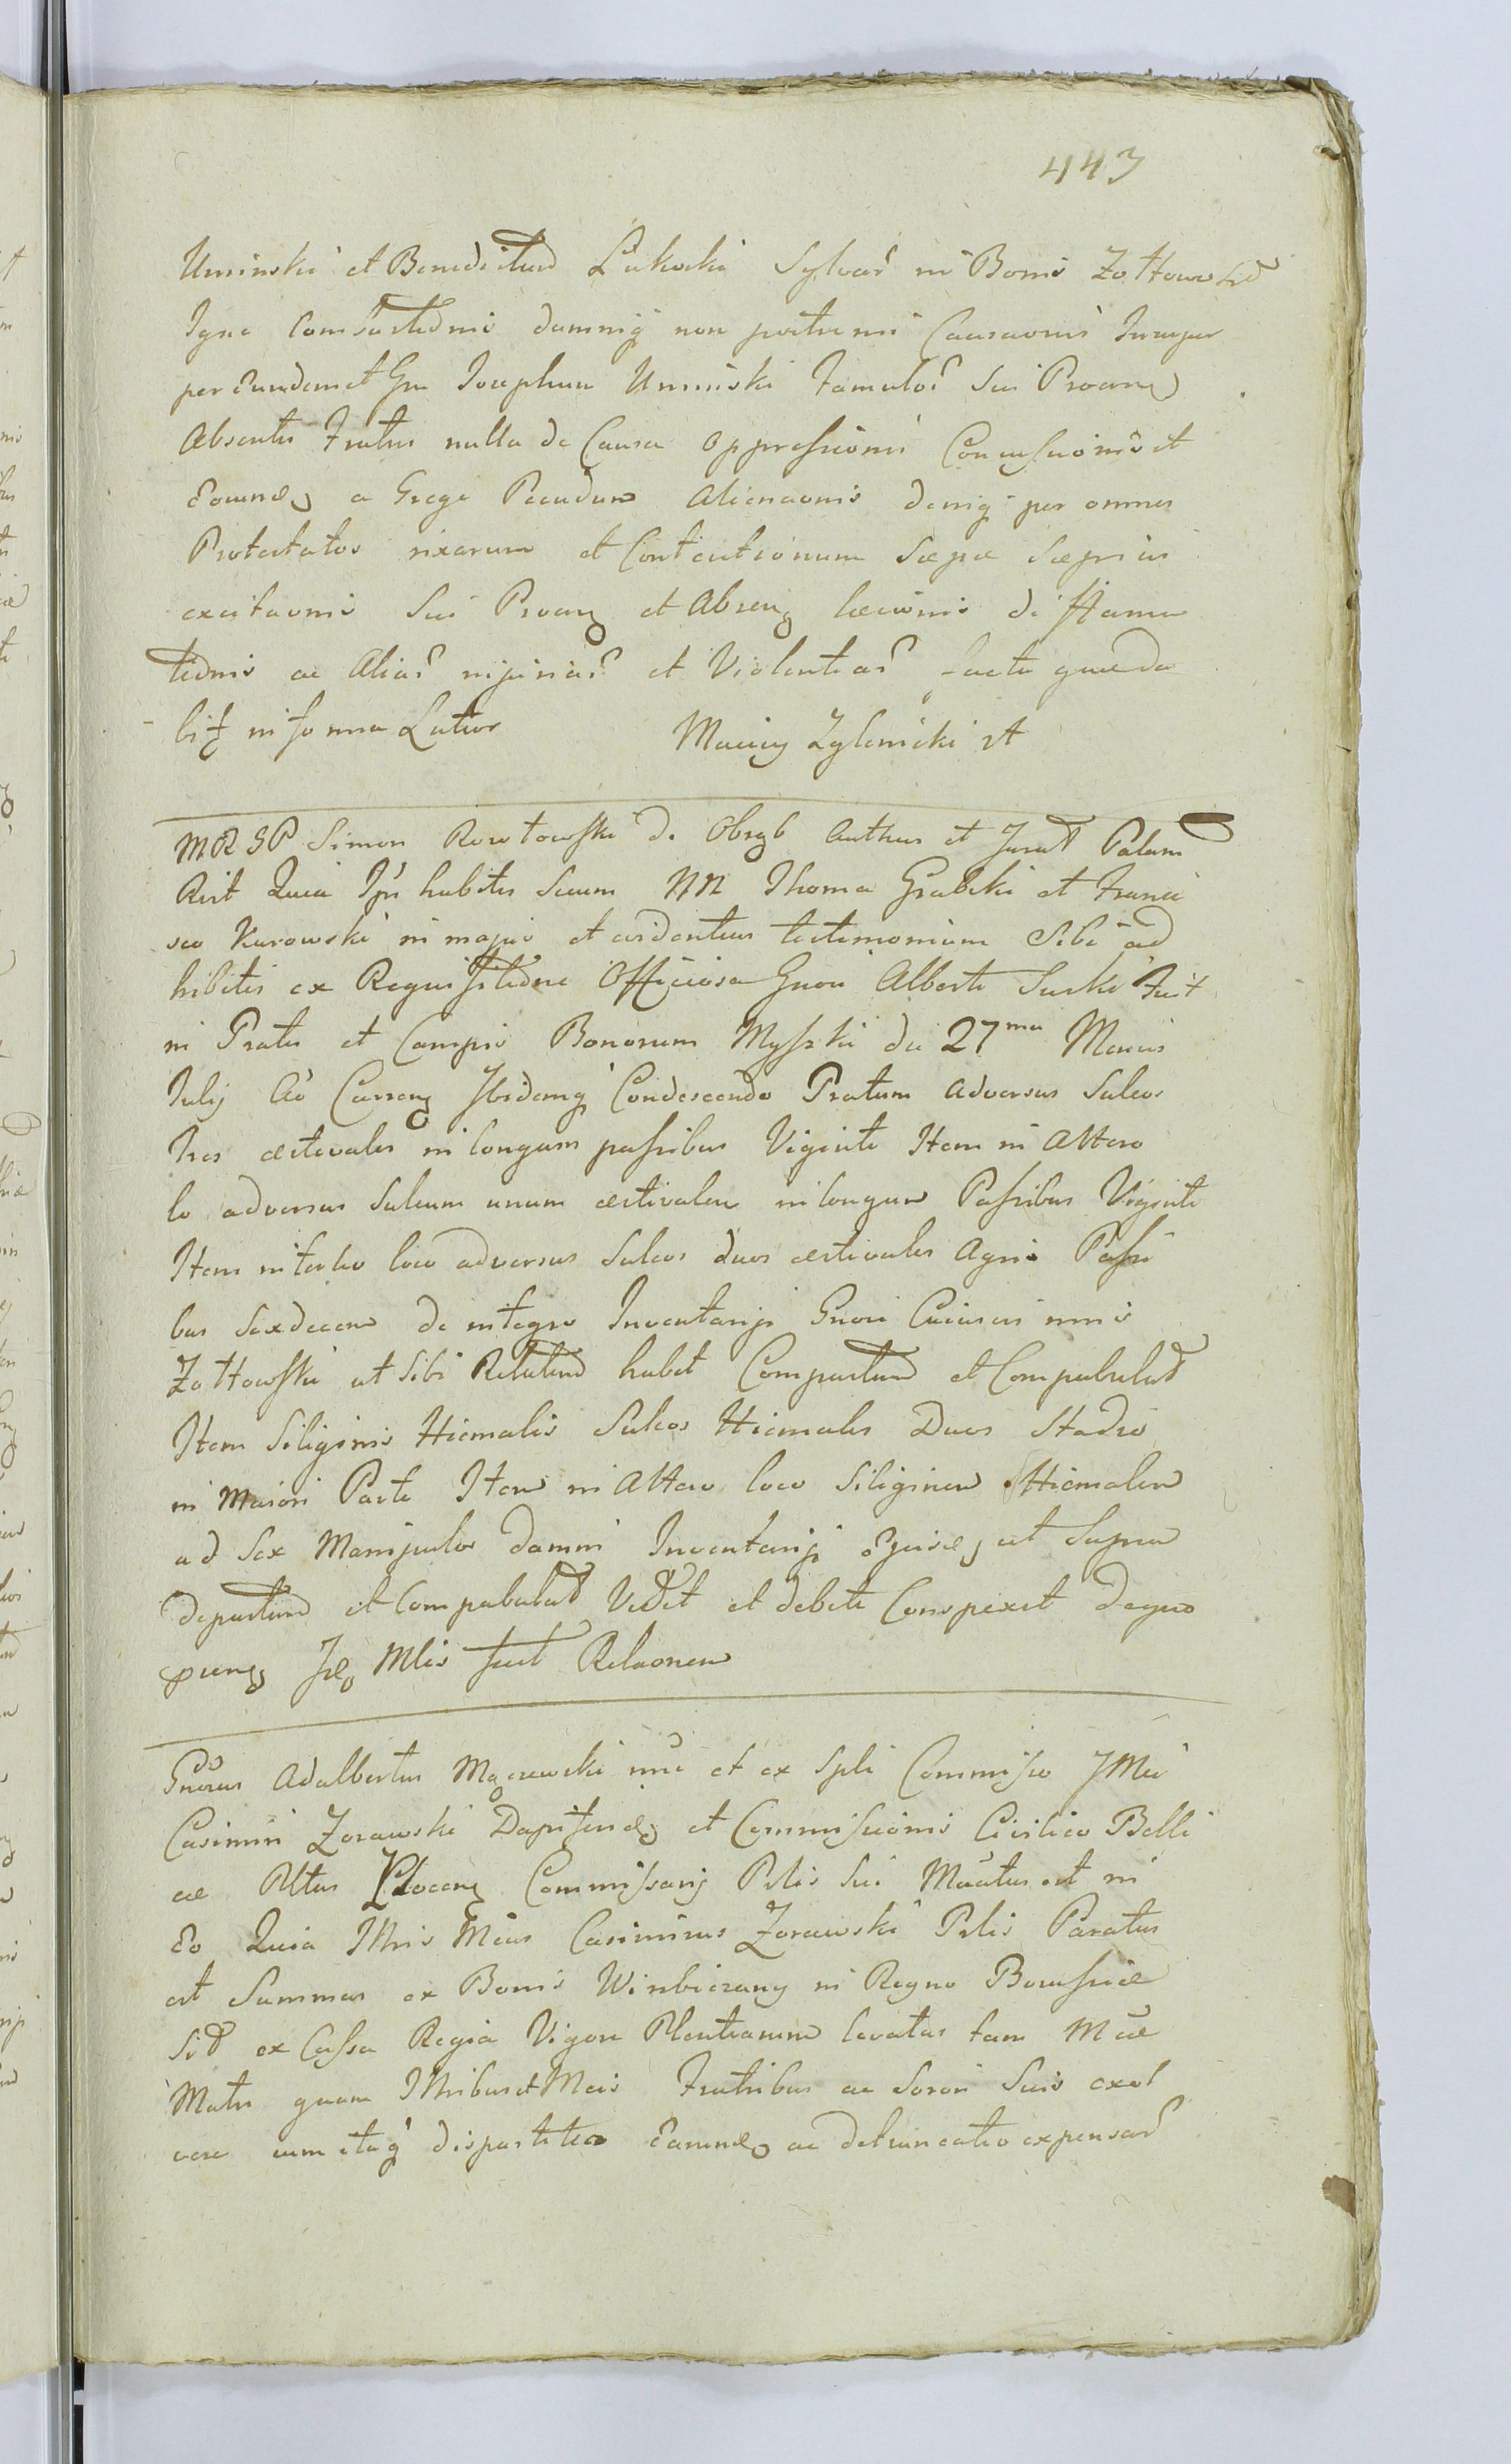 443
Uminski et Benedictum Lukocki Sylvar in Bonis Zołtowo
Igne Combustionis damniq non
per Eundemet Gm Josephum Uminski Famulos Sui Proene
Absentis Fratris nulla de Causa oppressionis Concussionis et
a Grege Pecudum Alienaonis deniq per omnes
Protestatos rixarum et Contentionum Sæpe Sæpius
excitaonis Sui Proenq et Absenq læsionis diffama
tionis ac Alias injurias et Violentias facta quæda
in forma Latior Maciey Zylinicki rt
MRGP Simon Rowtowski de Obręb Authus et Jurat Palam
Quia Ipse habitis Secum NN Thoma Grabski et Franci
sco Kurowski in majus et evidentius testimonium Sibi ad
hibitis ex Requisitione Officiosa Gnosi Alberti Surki Fuit
in Pratis et Campis Bonorum Myszki die 27ma Mensis
Julij Ao Currenq Ibidemq Condescendo Pratum adversus Sulcos
tres æstivales in longum passibus Viginti Item in Altero
lo adversus Sulcum unum æstivalem in longum Passibus Viginti
Item in tertio loco adversus Sulcos duos æstivales Agri Passi
bus Sexdecem de integro Inventarij Gnosi
Zołtowski ut Sibi Relatum habet Compastum et Compabulat
Item Siliginis Hiemalis Sulcos Hiemales Duos Stadio
in Maiori Parte Item in Altero loco Siliginem Hiemalem
ad Sex Manipulos damni Inventarij ut Supra
depastum et Compabulat Vidit et debite Conspexit deque
præmq Mlis fecit Relaonem
Gnosus Adalbertus Mączewski suo et ex Spli Commisso JMci
Casimiri Zorawski Dapiferidæ et Commissionis Civilico Belli
cæ Pltus Plocenq Commissarij Plis Sui Mantus est in
Eo Quia Illris Mcus Casimirus Zorawski Plis Paratus
est Summas ex Bonis Winbierzany in Regno Borussiæ
Sit ex Cassa Regia Vigore Plentiarum levatas tam Mcæ
Matri quam Illribus et Mcis Fratribus ac Sorori Suis exol
vere cum itaq dispartitio Earundæ ac detruncatio expensar